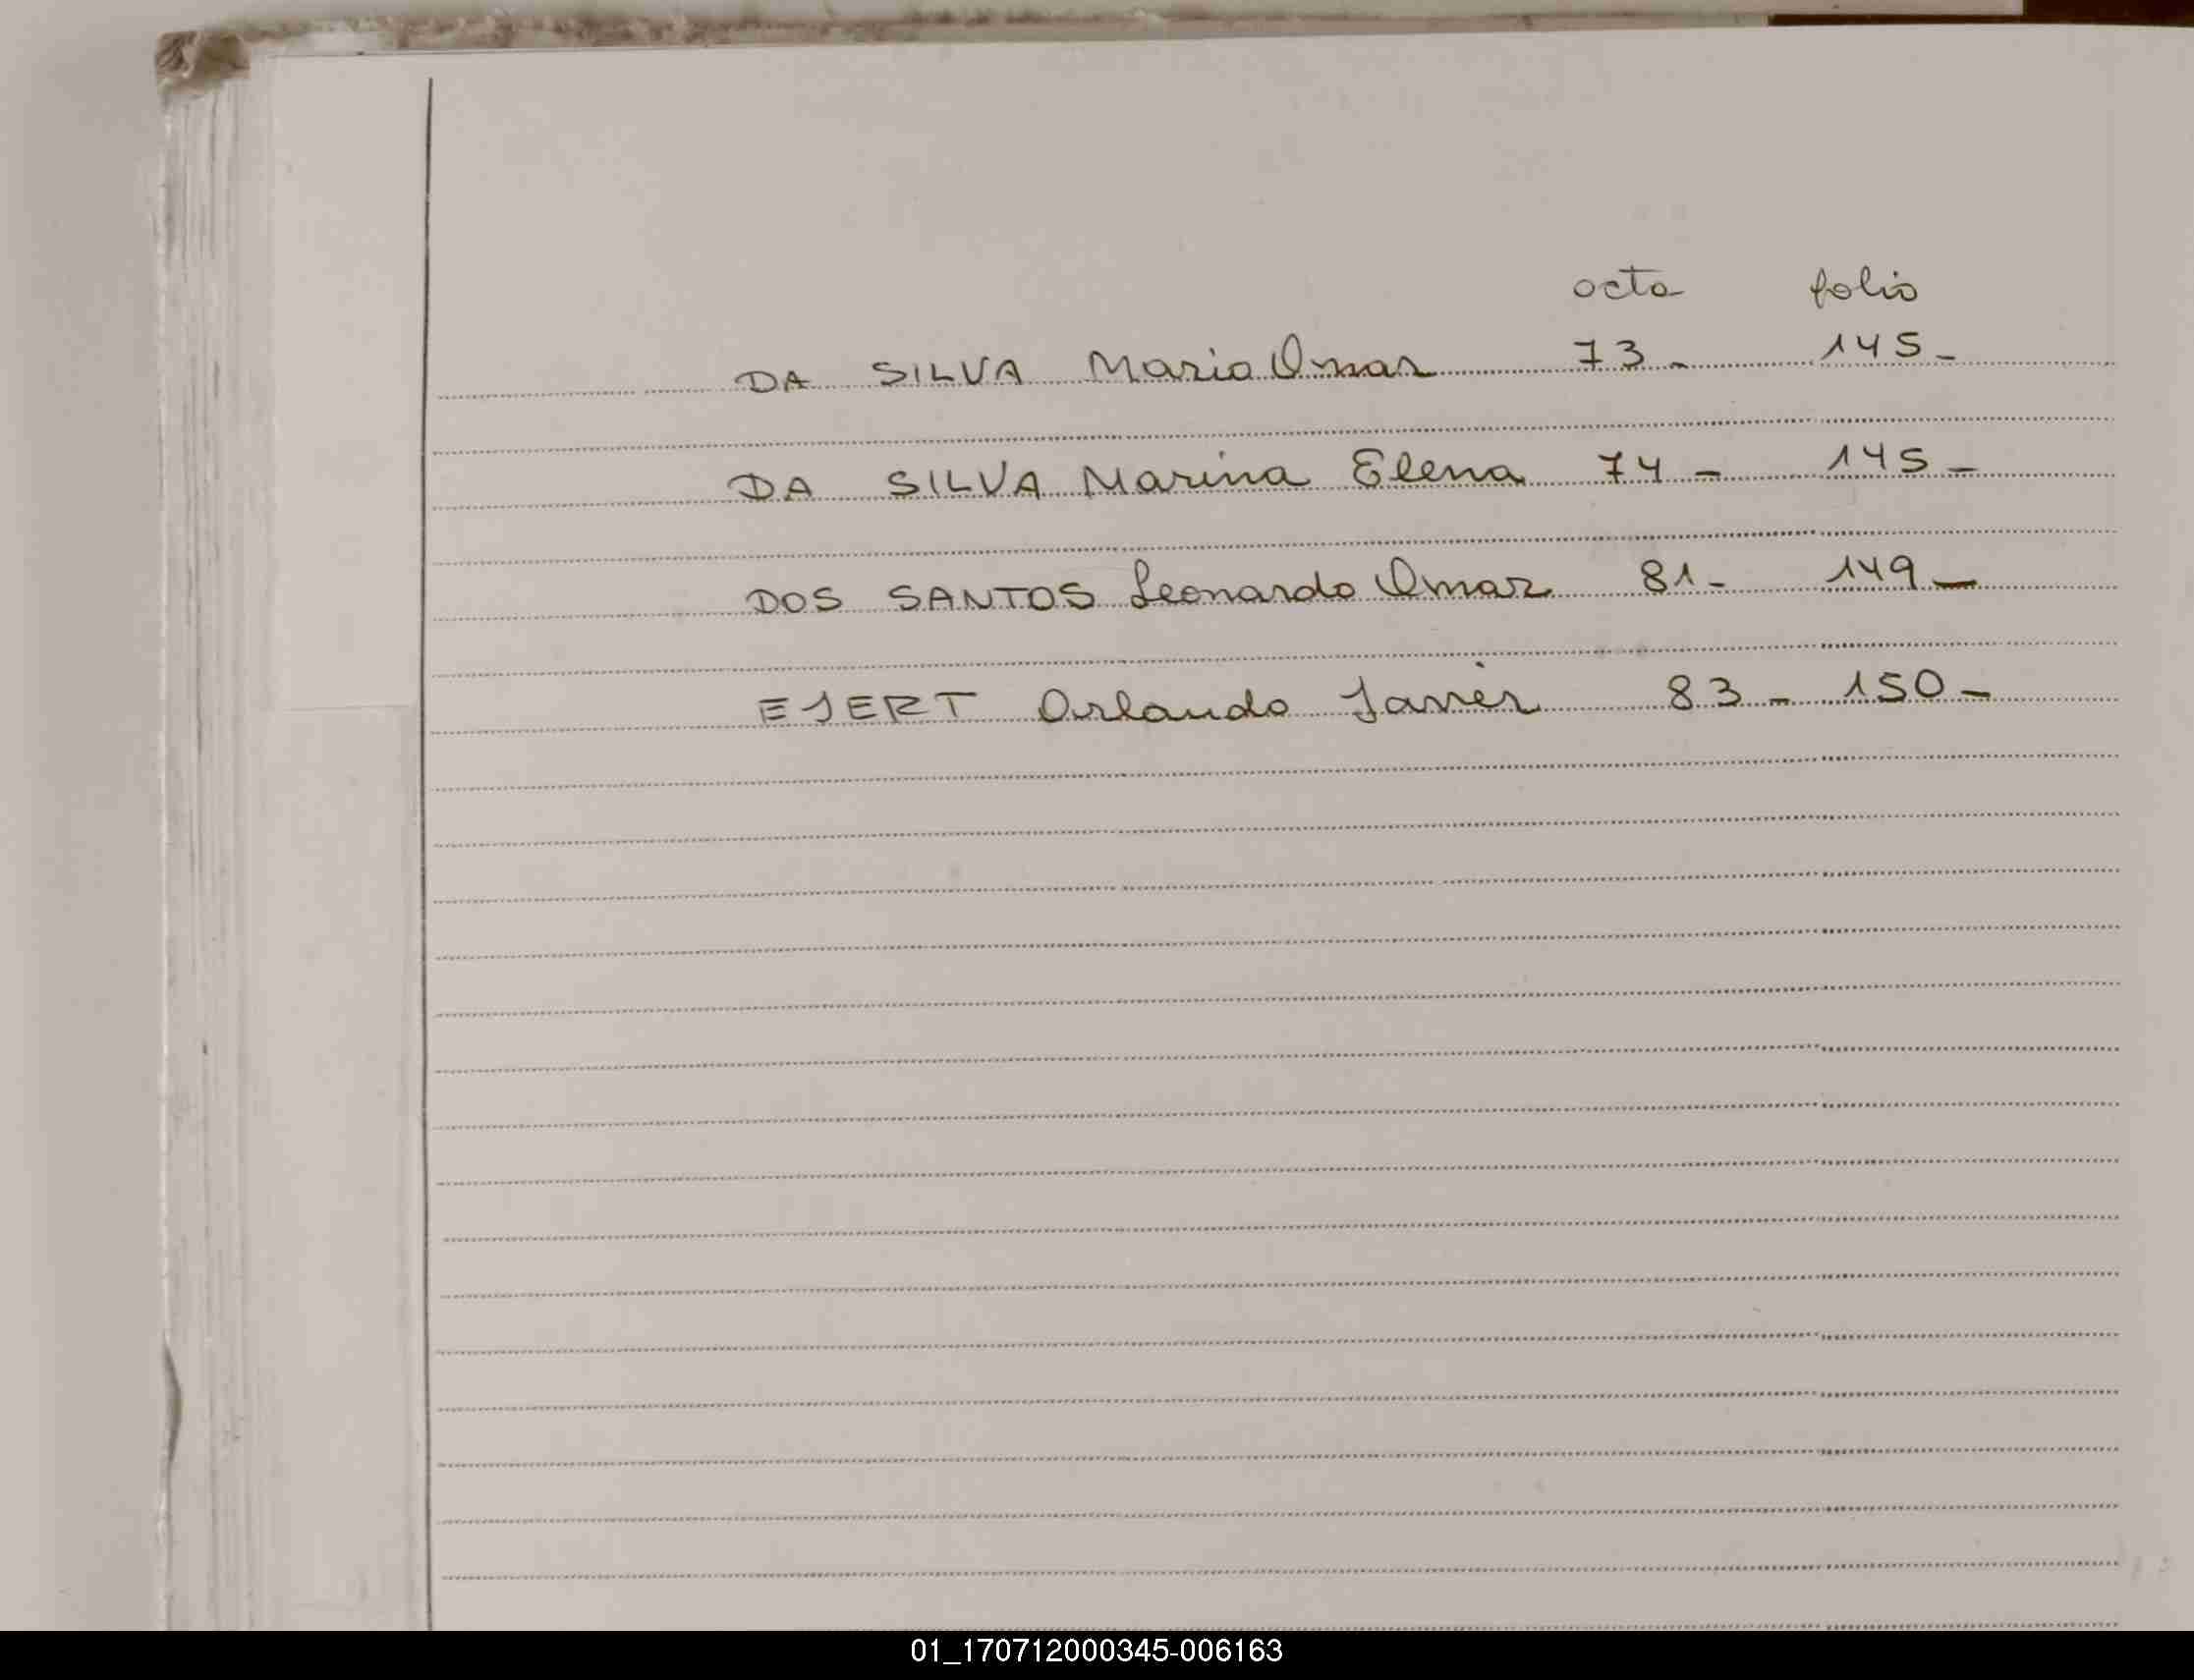 acta folio
DA SILVA Mario Omar 73- 145-
DA SILVA Marina Elena 74- 145-
DOS SANTOS Leonardo Omar 81- 149-
EJERT Orlando Javier 83- 150-
01_170712000345-006163